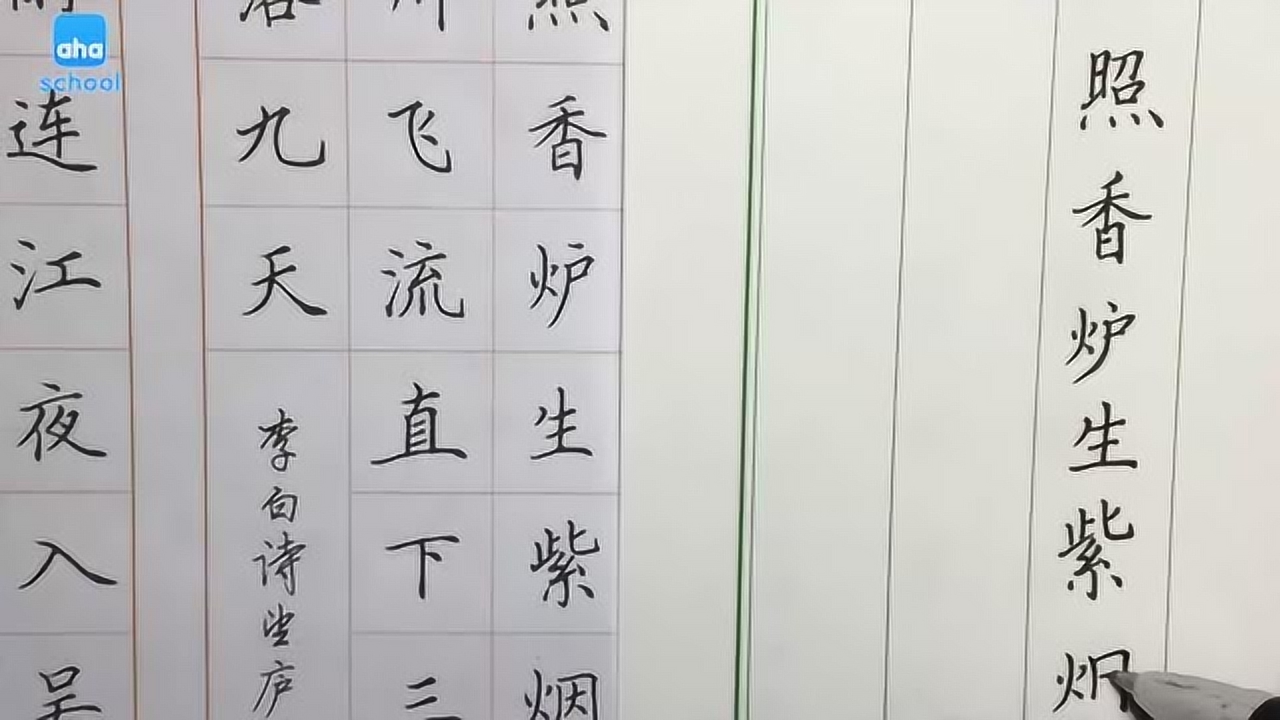 aha
school
照香炉生紫
照香炉生紫烟
川飞流直下三
落九天
李白诗望庐
连江夜入吴